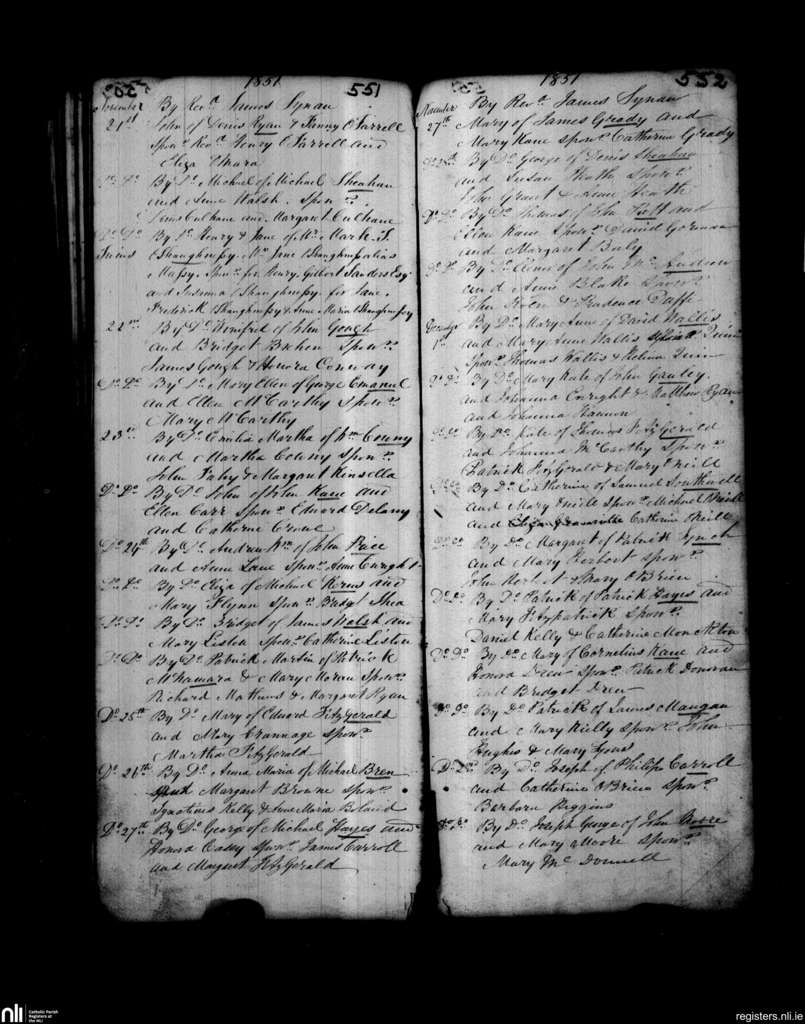 1851 551
November By Revd. James Synan
21st John of Denis Ryan & Fanny O'Farrell
Sponrs. Revd. Henry O'Farrell and
Eliza O'Mara
Do. Do. By Do. Michael of Michael Sheahan
and Anne Walsh. Sponrs.
Culhane and Margaret Culhane
Do. Do. By Do. Henry & Jane of Mr. Mark. S.
Twins O'Shaughnessy, Mrs. Jane O'Shaughnessy alias
Massy. Sponrs. for Henry, Gilbert Sanders Esqr
and Susanna O'Shaughnessy. for Jane,
Frederick O'Shaughnessy & Anne Maria O'Shaughnessy
22nd By Do. Winifred of John Gough
and Bridget Sponrs.
James Gough & Honora Conway
Do. Do. By Do. Mary Ellen of George Emanuel
and Ellen McCarthy Sponrs.
Mary McCarthy
23rd By Do. Emilia Martha of Wm
and Martha Sponrs.
John Fahy & Margaret Kinsella
Do. Do. By Do. John of John Kane and
Ellen Carr Sponrs. Edward Delany
and Catherine Crowe
Do. 24th By Do. Andrew Wm. of John Price
and Anne Lane Sponr. Anne Enright
Do. Do. By Do. Eliza of Michael Kerins and
Mary Flynn Sponr. Bridget Shea
Do. Do. By Do. Bridget of James Walsh and
Mary Liston Sponr. Catherine Liston
Do. Do. By Do. Patrick Martin of Patrick
McNamara & Mary Moran Sponrs.
Richard Mathews & Margaret Ryan
Do. 25th By Do. Mary of Edward FitzGerald
and Mary Sponr.
Martha FitzGerald
Do. 26th By Do. Anna Maria of Michael Bren
and Margaret Browne Sponrs.
Ignatius Kelly & Anne Maria Boland
Do. 27th By Do. George of Michael Hayes and
Honora Casey Sponrs. James Carroll
and Margaret FitzGerald
1851 552
November By Revd. James Synan
27th Mary of James Grady and
Mary Kane Sponr. Catherine Grady
Do. 28th By Do. George of Denis Sheahan
and Susan Heath Sponrs.
John Grant & Heath
Do. Do. By Do. Thomas of John and
Ellen Kane Sponrs. David Gorman
and Margaret Daly
Do. Do. By Do. of John Mc
and Annie Blake Sponrs.
John & Prudence Taffe
December By Do. Mary Anne of David Wallis
1st and Mary Anne Wallis Quin
Sponrs. Thomas Wallis & Helena Quin
Do. Do. By Do. Mary Kate of John Ganley
and Johanna Enright & Matthew Ryan
and Johanna Hannon
Do. Do. By Do. Kate of Thomas FitzGerald
and Johanna McCarthy Sponrs.
Patrick FitzGerald & Mary Neill
Do. Do. By Do. Catherine of Samuel Southwell
and Mary Neill Sponrs. Michael Neill
and Catherine Neill
Do. Do. By Do. Margaret of Patrick Lynch
and Mary Herbert Sponrs.
John Herbert & Mary O'Brien
Do. Do. By Do. Patrick of Patrick Hayes and
Mary Fitzpatrick Sponrs.
Daniel Kelly & Catherine Monckton
Do. Do. By Do. Mary of Cornelius Kane and
Honora Drew Sponrs. Patrick Donovan
and Bridget Drew
Do. Do. By Do. Patrick of James Mangan
and Mary Kielly Sponrs. John
Hughes & Mary Lyons
Do. Do. By Do. Joseph of Philip Carroll
and Catherine O'Brien Sponr.
Barbara Riggins
Do. Do. By Do. Joseph George of John Moore
and Mary Moore Sponr.
Mary McDonnell
nli Catholic Parish
Registers at
the NLI
registers.nli.ie